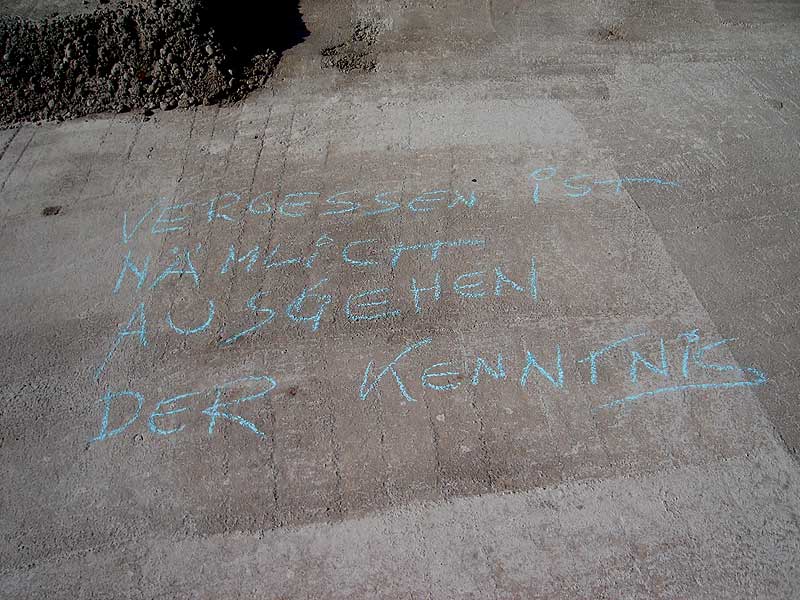 VERGESSEN iST
NÄMLiCH
AUSGEHEN
DER KENNTNiS